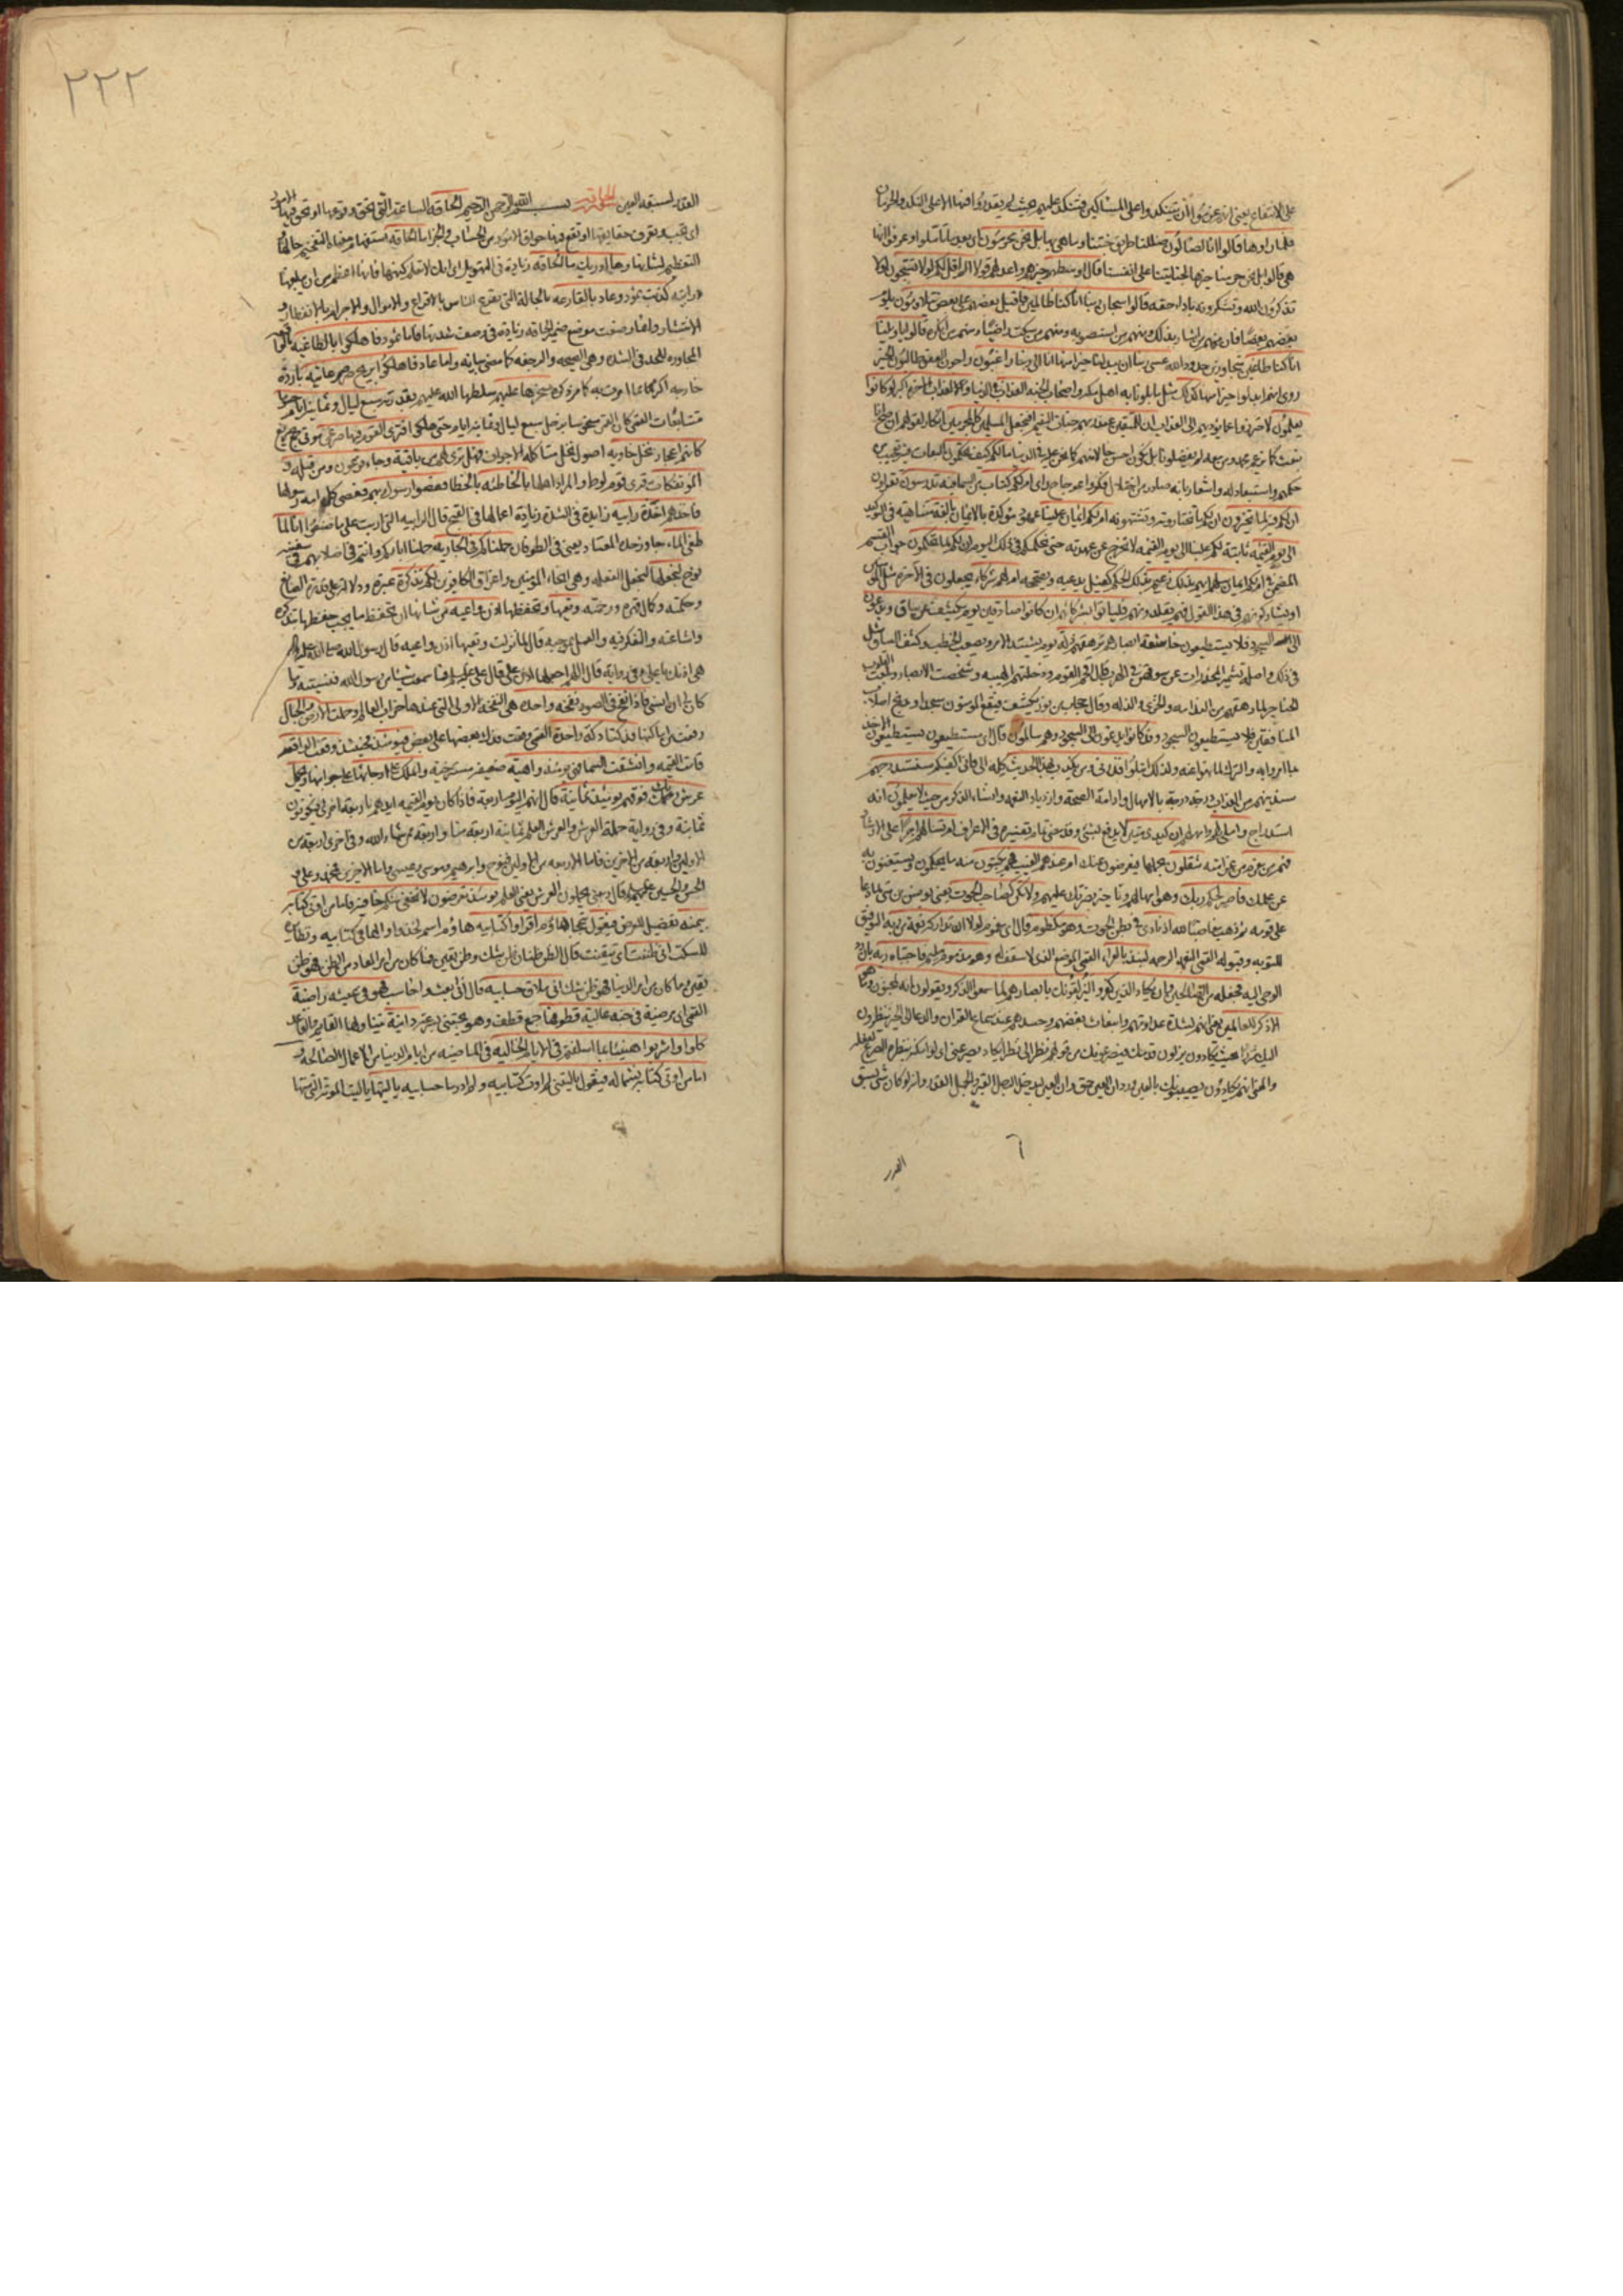 على الانتفاع يعنى انهم عزموا ان يتنكدوا على المساكين فتنكد عليهم بحيث لم يقدروا فيها الا على النكد والحرمان
فلما راوها قالوا انا لضالون ضللنا طريق جنتنا وما هى بها بل نحن محرومون اى بعد ما تاملوا وعرفوا انها
هى قالوا بل نحن حرمنا خيرها لجنايتنا على انفسنا قال اوسطهم خيرهم واعدلهم قولا الم اقل لكم لولا تسبحون لولا
تذكرون الله وتشكرونه باداء حقه قالوا سبحان ربنا انا كنا ظالمين فاقبل بعضهم على بعض يتلاومون يلوم
بعضهم بعضا فان منهم من اشار بذلك ومنهم من استصوبه ومنهم من سكت راضيا ومنهم من انكره قالوا يا ويلنا
انا كنا طاغين متجاوزين حدود الله عسى ربنا ان يبدلنا خيرا منها انا الى ربنا راغبون راجون العفو طالبون الخير
روى انهم ابدلوا خيرا منها كذلك مثل ما بلونا به اهل مكة واصحاب الجنة العذاب فى الدنيا ولعذاب الاخرة اكبر لو كانوا
يعلمون لاحترزوا عما يؤديهم الى العذاب ان للمتقين عند ربهم جنات النعيم افنجعل المسلمين كالمجرمين انكار لقولهم ان صح انا
نبعث كما يزعم محمد ومن معه لم يفضلونا بل نكون احسن حالا منهم كما نحن عليه فى الدنيا ما لكم كيف تحكمون التفات فيه تعجيب من
حكمهم واستبعاد له واشعار بانه صادر من اختلال فكر واعوجاج راى ام لكم كتاب من السماء فيه تدرسون تقرؤن
ان لكم فيه لما تخيرون ان لكم ما تختارونه وتشتهونه ام لكم ايمان علينا عهود مؤكدة بالايمان بالغة متناهية فى التوكيد
الى يوم القيمة ثابتة لكم علينا الى يوم القيمة لا نخرج عن عهدته حتى نحكمكم فى ذلك اليوم ان لكم لما تحكمون جواب القسم
المضمن فى ام لكم ايمان سلهم ايهم بذلك زعيم بذلك الحكم كفيل يدعيه ويصححه ام لهم شركاء يجعلون فى الاخرة مثل المؤمنين
او يشاركونهم فى هذا القول فهم يقلدونهم فلياتوا بشركائهم ان كانوا صادقين يوم يكشف عن ساق ويدعون
الى السجود فلا يستطيعون خاشعة ابصارهم ترهقهم ذلة يوم يشتد الامر ويصعب الخطب وكشف الساق مثل
فى ذلك واصله تشمير المخدرات عن سوقهن فى الهرب قال افحم القوم ودخلتهم الهيبة وشخصت الابصار وبلغت القلوب
الحناجر لما رهقهم من الندامة والخزى والذلة وقال حجاب من نور يكشف فيقع المؤمنون سجدا وتدمج اصلاب
المنافقين فلا يستطيعون السجود وقد كانوا يدعون الى السجود وهم سالمون قال اى مستطيعون يستطيعون الاخذ
بما امروا به والترك لما نهوا عنه ولذلك ابتلوا فذرنى ومن يكذب بهذا الحديث كله الى فانى اكفيكه سنستدرجهم
سندنيهم من العذاب درجة درجة بالامهال وادامة الصحة وازدياد النعمة وانساء الذكر من حيث لا يعلمون انه
استدراج واملى لهم وامهلهم ان كيدى متين لا يدفع بشئ وقد مضى تمام تفسيره فى الاعراف ام تسئلهم اجرا على الارشاد
فهم من مغرم من غرامة مثقلون بحملها فيعرضون عنك ام عندهم الغيب فهم يكتبون منه ما يحكمون ويستغنون به
عن علمك فاصبر لحكم ربك وهو امهالهم وتاخير نصرتك عليهم ولا تكن كصاحب الحوت يعنى يونس بن متى لما دعا
على قومه ثم ذهب مغاضبا لله اذ نادى فى بطن الحوت وهو مكظوم قال اى مغموم لولا ان تداركه نعمة من ربه التوفيق
للتوبة وقبوله القمى النعمة الرحمة لنبذ بالعراء القمى الموضع الذى لا سقف له وهو مذموم مليم فاجتباه ربه بان رد
الوحى اليه فجعله من الصالحين وان يكاد الذين كفروا ليزلقونك بابصارهم لما سمعوا الذكر ويقولون انه لمجنون وما هو
الا ذكر للعالمين يعنى انهم لشدة عداوتهم وانبعاث بغضهم وحسدهم عند سماع القران والدعاء الى الخير ينظرون
اليك شزرا بحيث يكادون يزلون قدمك فيصرعونك من قولهم نظر الى نظرا يكاد يصرعنى اى لو امكنه بنظره الصرع لفعله
والمعنى انهم يكادون يصيبونك بالعين وورد ان العين حق وان العين ليدخل الرجل القبر والجمل القدر وانه لو كان شئ يسبق
القدر
٢٢٢
القدر لسبقه العين الحاقة بسم الله الرحمن الرحيم الحاقة الساعة التى تحق وقوعها او تحق فيها الامور
اى تجب وتعرف حقايقها او تقع فيها حواق الامور من الحساب والجزاء ما الحاقة استفهام معناه التفخيم لحالها و
التعظيم لشانها وما ادريك ما الحاقة زيادة فى التهويل اى انك لا تعلم كنهها فانها اعظم من ان يبلغها
دراية كذبت ثمود وعاد بالقارعة بالحالة التى تقرع الناس بالافزاع والاهوال والاجرام بالانفطار و
الانتشار وانما وضعت موضع ضمير الحاقة زيادة فى وصف شدتها فاما ثمود فاهلكوا بالطاغية بالواقعة
المجاوزة للحد فى الشدة وهى الصيحة والرجفة كما مضى بيانه واما عاد فاهلكوا بريح صرصر عاتية باردة
خارجة اكثر مما امرت به كما مر ذكره سخرها عليهم سلطها الله عليهم بقدرته سبع ليال وثمانية ايام حسوما
متتابعات القمى كان القمر منحوسا بزحل سبع ليال وثمانية ايام حتى هلكوا فترى القوم فيها صرعى موتى جمع صريع
كانهم اعجاز نخل خاوية اصول نخل متاكلة الاجواف فهل ترى لهم من باقية وجاء فرعون ومن قبله و
المؤتفكات قرى قوم لوط والمراد اهلها بالخاطئة بالخطا فعصوا رسول ربهم فعصى كل امة رسولها
فاخذهم اخذة رابية زايدة فى الشدة زيادة اعمالها فى القبح قال الرابية التى اربت على ما صنعوا انا لما
طغى الماء جاوز حده المعتاد يعنى فى الطوفان حملناكم فى الجارية حملنا اباءكم وانتم فى اصلابهم فى سفينة
نوح لنجعلها لنجعل الفعلة وهى انجاء المؤمنين واغراق الكافرين لكم تذكرة عبرة ودلالة على قدرة الصانع
وحكمته وكمال قهره ورحمته وتعيها وتحفظها اذن واعية من شانها ان تحفظ ما يجب حفظها بتذكره
واشاعته والتفكر فيه والعمل بموجبه قال لما نزلت وتعيها اذن واعية قال رسول الله صلى الله عليه واله
هى اذنك يا على وفى رواية قال اللهم اجعلها اذن على قال على عليه السلم فما سمعت شيئا من رسول الله فنسيته وما
كان لى ان انسى فاذا نفخ فى الصور نفخة واحدة هى النفخة الاولى التى عندها خراب العالم وحملت الارض والجبال
رفعت من اماكنها فدكتا دكة واحدة القمى وقعت فدك بعضها على بعض فيومئذ فحينئذ وقعت الواقعة
قامت القيمة وانشقت السماء فهى يومئذ واهية ضعيفة مسترخية والملك على ارجائها على جوانبها ويحمل
عرش ربك فوقهم يومئذ ثمانية قال انهم اليوم اربعة فاذا كان يوم القيمة ايدهم باربعة اخرى فيكونون
ثمانية وفى رواية حملة العرش والعرش العلم ثمانية اربعة منا واربعة ممن شاء الله وفى اخرى اربعة من
الاولين واربعة من الاخرين فاما الاربعة من الاولين فنوح وابرهيم وموسى وعيسى واما الاخرين فمحمد وعلى و
الحسن والحسين عليهم السلم قال ومعنى يحملون العرش يعنى العلم يومئذ تعرضون لا تخفى منكم خافية فاما من اوتى كتابه
بيمينه تفصيل للعرض فيقول تبجحا هاؤم اقرؤا كتابيه هاؤم اسم لخذوا والهاء فى كتابيه ونظايره
للسكت انى ظننت اى تيقنت قال الظن ظنان ظن شك وظن يقين فما كان من امر المعاد من الظن فهو ظن
يقين وما كان من امر الدنيا فهو ظن شك انى ملاق حسابيه قال انى ابعث واحاسب فهو فى عيشة راضية
القمى اى مرضية فى جنة عالية قطوفها جمع قطف وهو ما يجتنى بسرعة دانية يتناولها القايم والقاعد
كلوا واشربوا هنيئا بما اسلفتم فى الايام الخالية فى الماضية من ايام الدنيا من الاعمال الصالحة و
اما من اوتى كتابه بشماله فيقول يا ليتنى لم اوت كتابيه ولم ادر ما حسابيه يا ليتها يا ليت الموتة التى متها